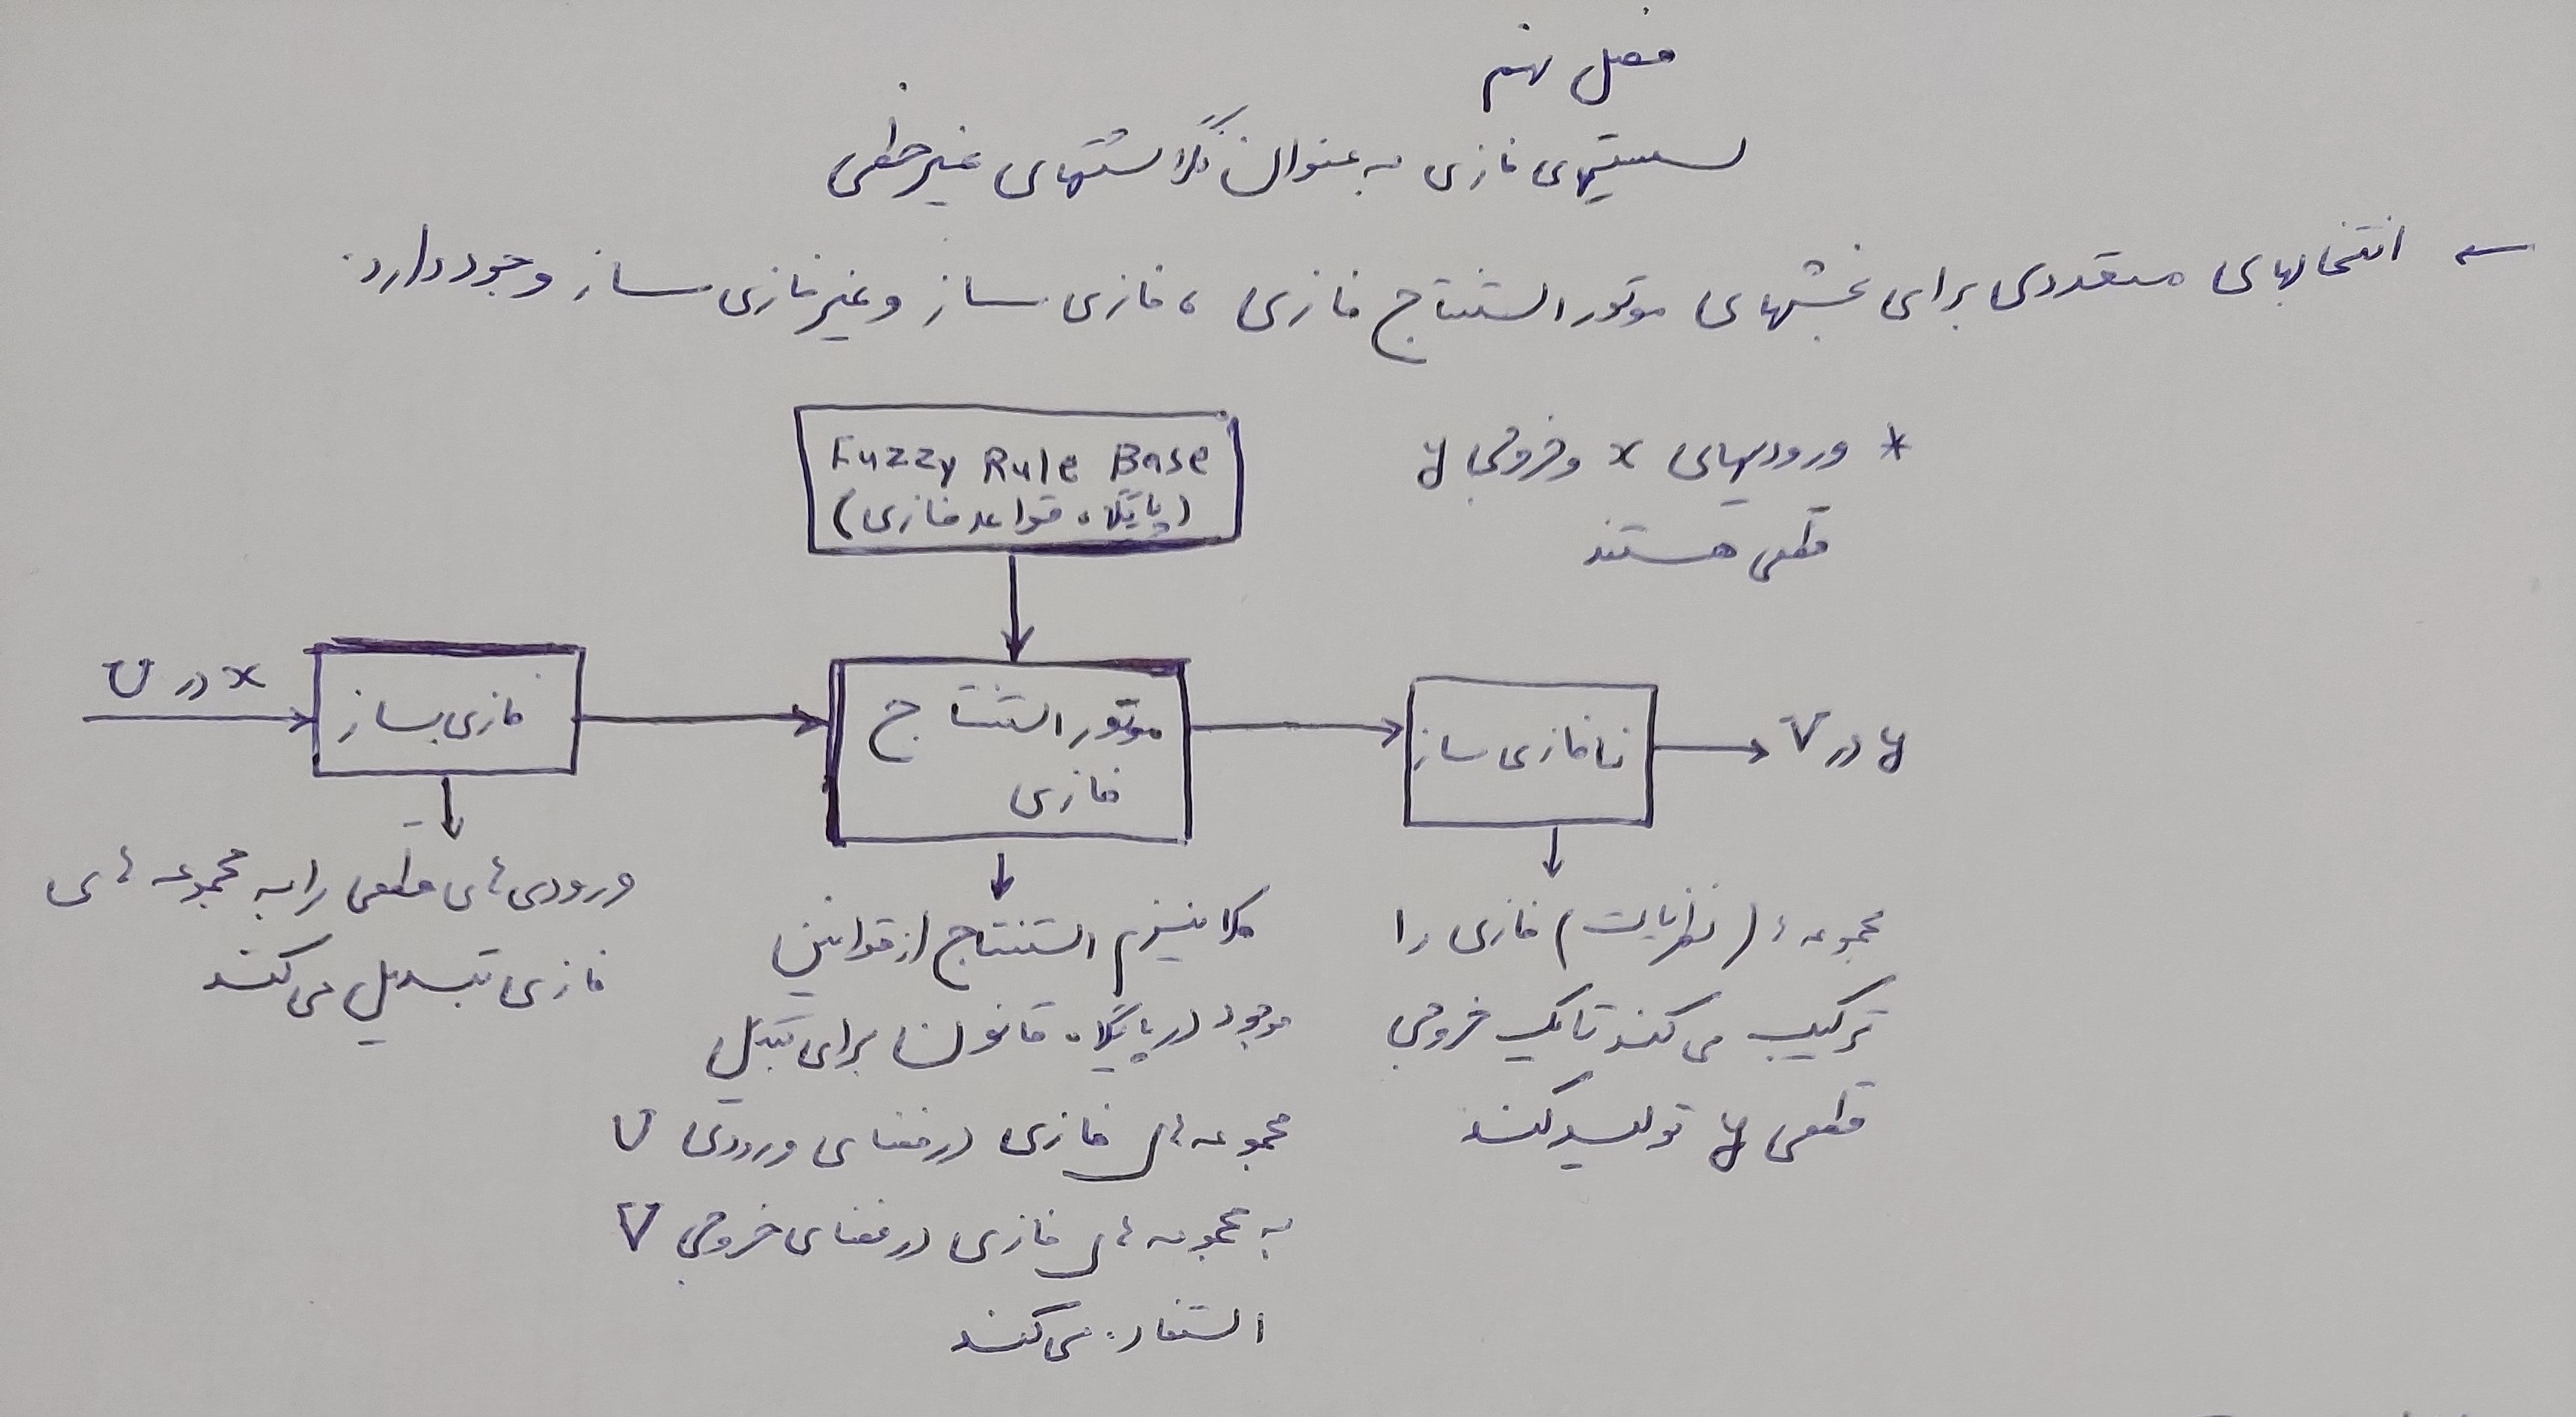 فصل نهم
سیستمهای فازی به عنوان نگاشتهای غیرخطی
← انتخابهای متعددی برای بخشهای موتور استنتاج فازی ، فازی ساز و غیرفازی ساز وجود دارد.
* ورودیهای x و خروجی y
قطعی هستند
Fuzzy Rule Base
(پایگاه قواعد فازی)
x در U
فازی ساز
موتور استنتاج
فازی
نافازی ساز
y در V
ورودی های قطعی را به مجموعه های
فازی تبدیل می کند
مکانیزم استنتاج از قوانین
موجود در پایگاه قانون برای تبدیل
مجموعه های فازی در فضای ورودی U
به مجموعه های فازی در فضای خروجی V
استفاده می کند
مجموعه (نظریات) فازی را
ترکیب می کند تا یک خروجی
قطعی y تولید کند